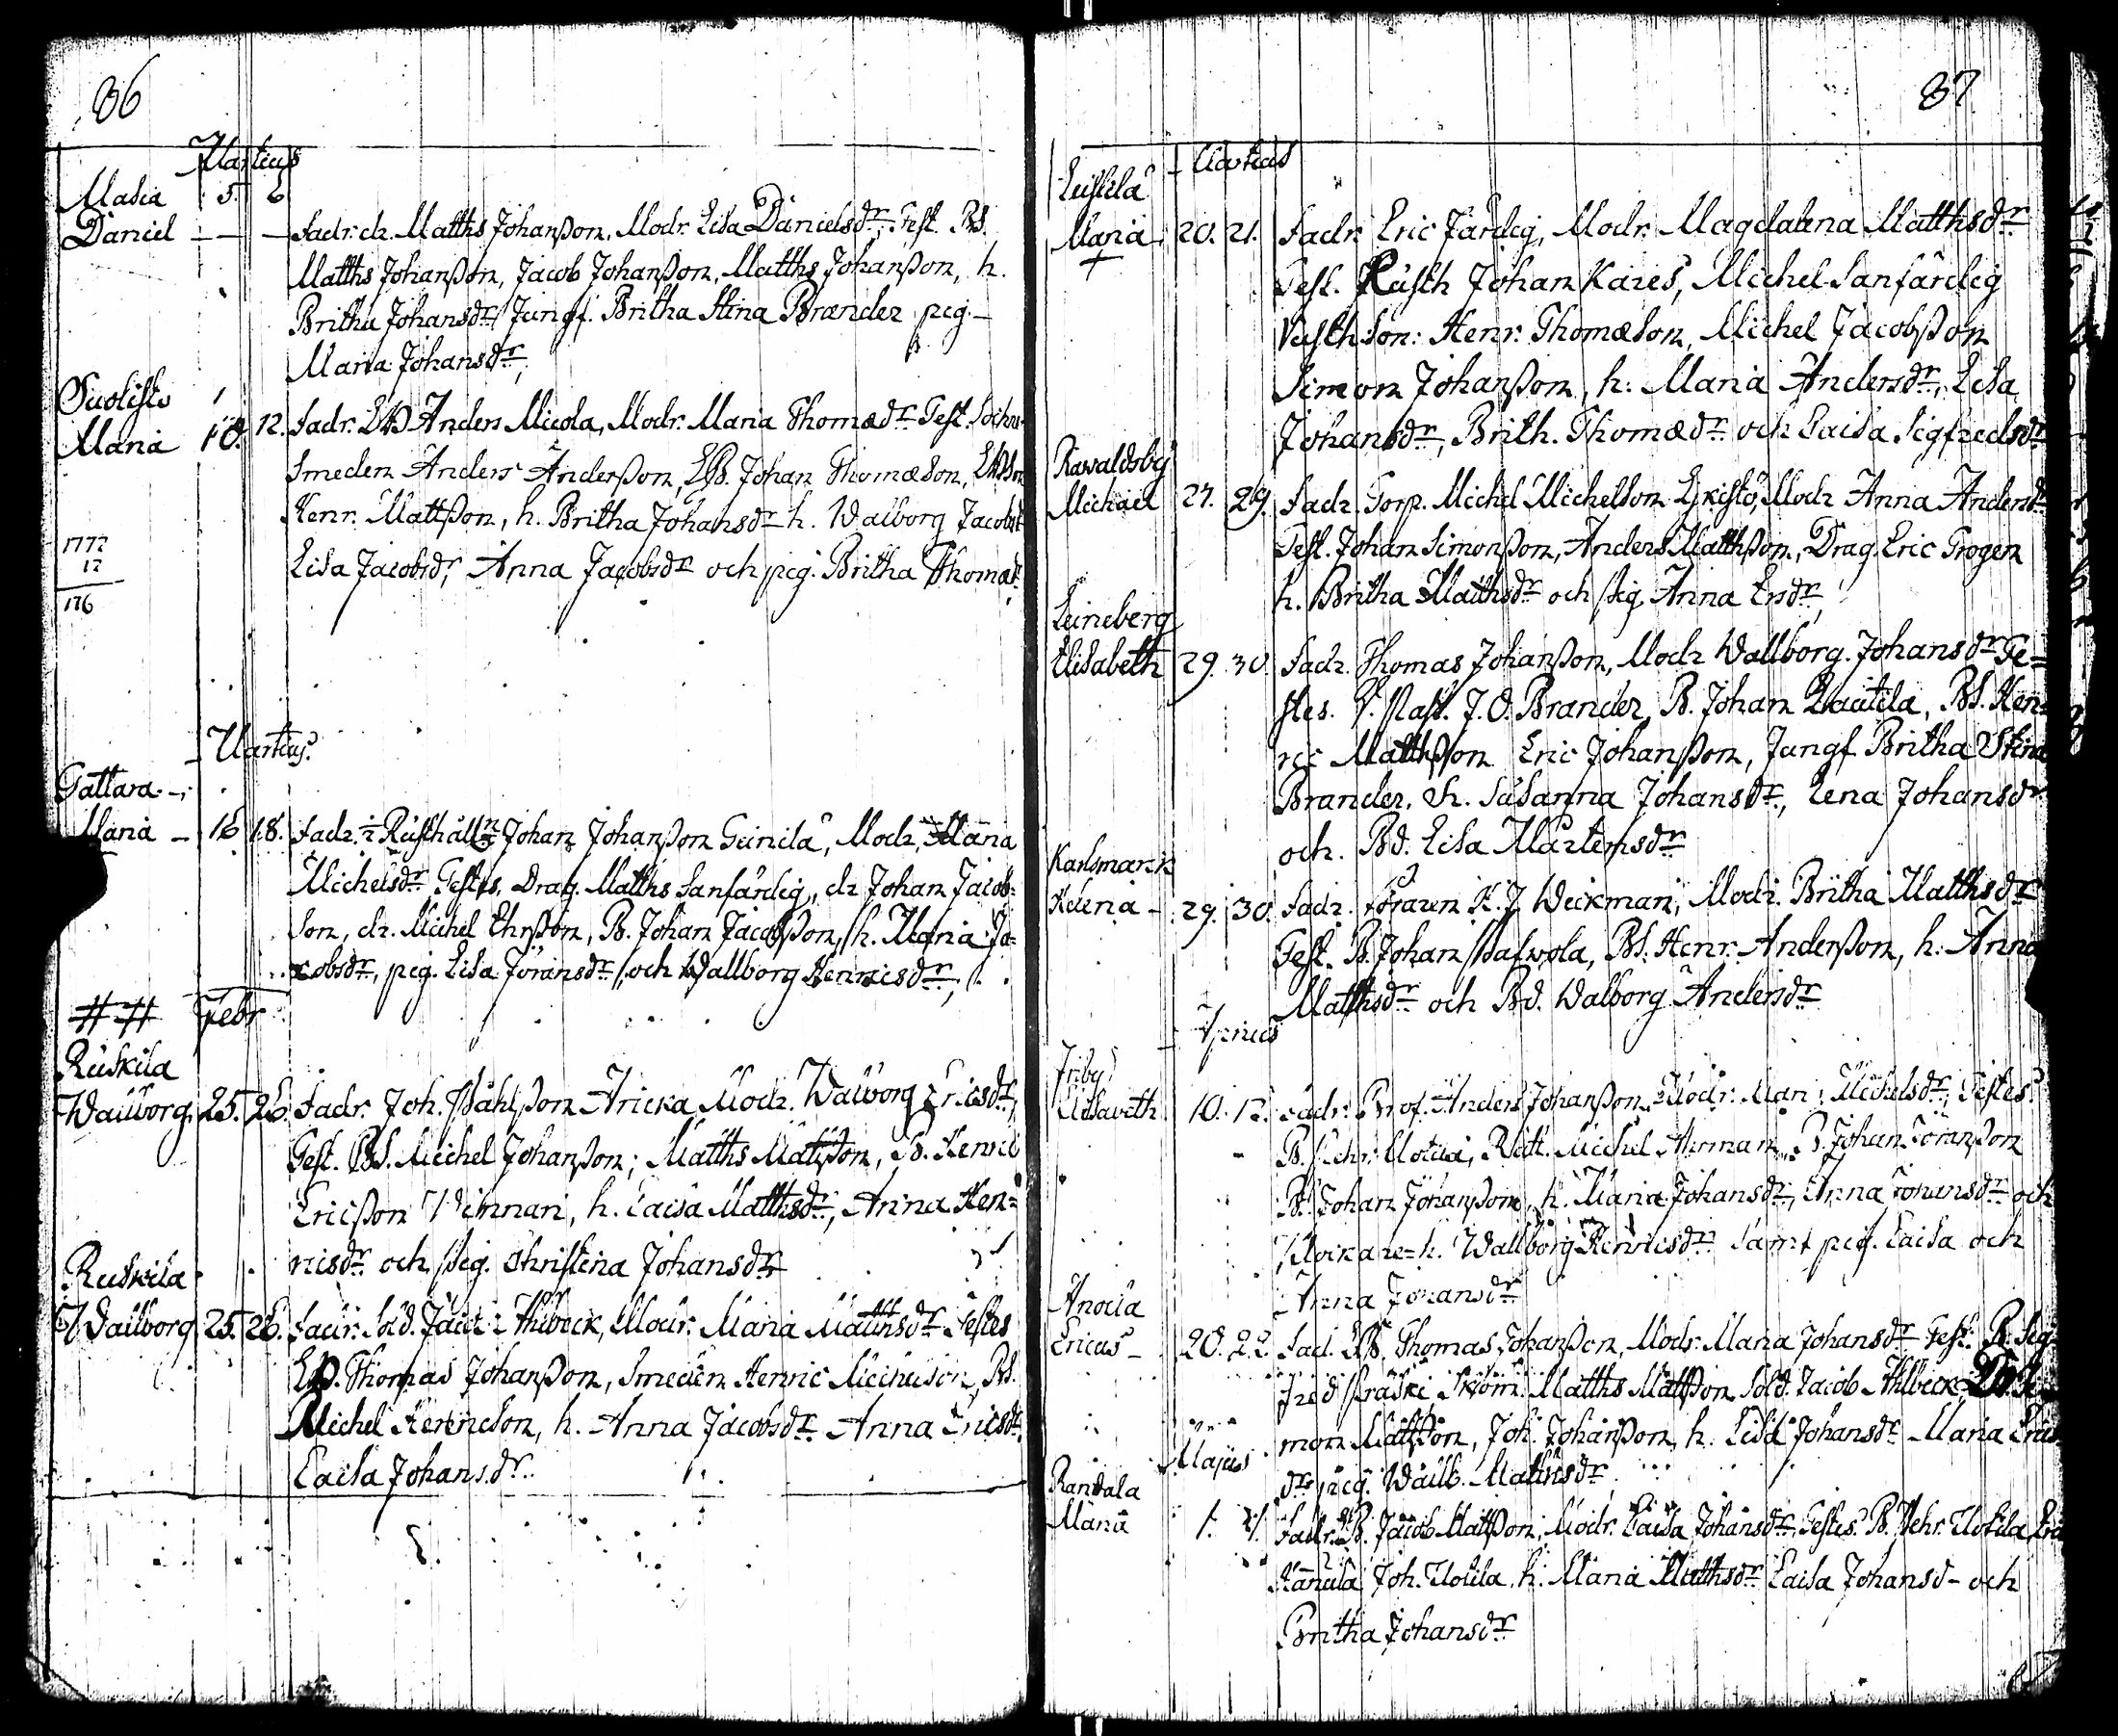 86
Martius
Masia 5. 6
Daniel - - - Fadr. dr. Matths Johanßon, Modr. Lisa Danielsdr, Test. Bs.
Matths Johanßon, Jacob Johanßon, Matths Johanßon, h.
Britha Johansdr, Jungf. Britha Stina Brander pig.
Maria Johansdr,
Suolisto
Maria 10. 12. Fadr. Anders Micola, Modr. Maria Thomædr Test. Sockne-
smeden Anders Anderßon, LB. Johan Thomæson,
Henr. Mattßon, h. Britha Johansdr h. Walborg Jacobsd
Lisa Jacobsdr, Anna Jacobsdr och pig. Britha Thomædr
1772
12
176
Martius
Tattara
Maria - 16 18. Fadr. ½ Rusthålln Johan Johanßon Geinilä, Modr. Maria
Michelsdr Testes, Drag. Matths Sanfärdig, dr Johan Jacob-
son, dr. Michel Ehrsßon, B. Johan Jacobßon, h. Maria Ja-
cobsdr, pig. Lisa Jöransdr, och Wallborg Henricsdr,
Febr
Ruskila
Walborg 25. 26. Fadr. Joh. Påhlßon Aricka, Modr. Walborg Ericsdr,
Test. BS. Michel Johanßon; Matths Mattßon, B. Henric
Ericßon Wihnnari, h. Caisa Matthsdr, Anna Hen-
ricsdr och pig. Christina Johansdr
Ruskila
Wallborg 25. 26. Fadr. Sold. Jacob Ahlbeck, Modr. Maria Matthsdr Testes
LB. Thomas Johanßon, Smeden Henric Michelson, Bs.
Michel Henricson, h. Anna Jacobsdr Anna Ericsdr
Caisa Johansdr.
87
Martius
Leistilä
Maria 20. 21. Fadr. Eric Färdig, Modr. Magdalena Matthsdr
Test. Rusth Johan Kares, Michel Sanfärdig
Rusth.son: Henr. Thomæson, Michel Jacobßon
Simon Johanßon, h: Maria Andersdr, Lisa
Johansdr, Brith. Thomædr och Caisa Sigfredsdr
Rawaldsby
Michael 27. 29. Fadr. Torp. Michel Michelson Ejkistö, Modr Anna Andersdr
Test. Johan Simonßon, Anders Matthßon, Drag. Eric Trogen
h. Britha Matthsdr och Pig. Anna Ersdr,
Leineberg
Elisabeth 29. 30. Fadr. Thomas Johanßon, Modr Wallborg Johansdr Te-
stes. V. Past. J. O. Brander, B. Johan Rautila, BS. Hen-
ric Matthßon Eric Johanßon, Jungf Britha Stina
Brander, h. Susanna Johansdr, Lena Johansdr
och Bd. Lisa Mårtensdr
Karlsmark
Helena - 29. 30. Fadr. Föraren K. J. Weckman, Modr. Britha Matthsdr
Test. B. Johan Palwola, BS. Henr. Anderßon, h. Anna
Matthsdr och Bd. Walborg Andersdr
Aprilis
Friby
Elisabeth 10. 12. Fadr. Prof. Anders Johanßon, Modr. Mari Michelsdr, Testes
B. Pehr Uotila, Rått. Michel Ahrman, B Johan Jöranßon
Bs. Johan Johanßon, h. Maria Johansdr, Anna Johansdr och
Klockare-h. Wallborg Henricsdr Samt pig. Caisa och
Anna Johansdr
Anola
Ericus - 20. 22. Fad. LB. Thomas Johanßon, Modr. Maria Johansdr Test. B. Sig-
fred Kraski Skom. Matths Mattßon Sold. Jacob Ahlbeck, BS. Si-
mon Mattßon, Joh. Johanßon, h. Lisa Johansdr Maria Erics
dr pig. Wallb. Matthsdr
Majus
Randala
Maria 1. Fadr. B. Jacob Mattßon, Modr. Caisa Johansdr, Testes B. Pehr. Uotila
Hannula Joh. Uotila, h. Maria Matthsdr Caisa Johansd och
Britha Johansdr